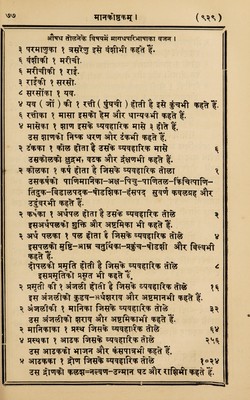 ७७ मानकोष्ठकम् । (९२९)
औषध तोलनेके विषयमें मागधपरिभाषाका वजन ।
३ परमाणुका १ त्रसरेणु इसे वंशीभी कहते हैं.
६ वंशीकी १ मरीची.
६ मरीचीकी १ राई.
३ राईकी १ सरसों.
८ सरसोंका १ यव.
४ यव ( जों ) की १ रत्ती ( घुंघची ) होती है इसे कुंचभी कहते हैं.
६ रत्तीका १ मासा इसको हेम और धान्यकभी कहते हैं.
४ मासेका १ शाण इसके व्यवहारिक मासे ३ होते हैं.
उस शाणको निष्क धरण और टंकभी कहते हैं.
२ टंकका १ कोल होता है उसके व्यवहारिक मासे ६
उसकोलको क्षुद्रभ, वटक और द्रंक्षणभी कहते हैं.
२ कोलका १ कर्ष होता है जिसका व्यवहारिक तोला १
उसकर्षको पाणिमानिका-अक्ष-पिचु-पाणितल-किंचित्पाणि-
तिंदुक-बिडालपदक-षोडशिका-हंसपद सुवर्ण कवलग्रह और
उदुंबरभी कहते हैं.
२ कर्षका १ अर्धपल होता है उसके व्यवहारिक तोले २
इसअर्धपलको शुक्ति और अष्टमिका भी कहते हैं.
२ अर्ध पलका १ पल होता है जिसके व्यवहारिक तोले ४
इसपलको मुष्टि-आम्र चतुर्थिका-प्रकुंच-षोडशी और बिल्वभी
कहते हैं.
दोपलको प्रसृति होती है जिसके व्यवहारिक तोले ८
इसप्रसृतिको प्रसृत भी कहते हैं.
२ प्रसृती की १ अंजली होती है जिसके व्यवहारिक तोले १६
इस अंजलीको कुडव-अर्धशराव और अष्टमानभी कहते हैं.
२ अंजलीकी १ मानिका जिसके व्यवहारिक तोले ३२
उस अंजलीको शराव और अष्टमिकाभी कहते हैं.
२ मानिकाका १ प्रस्थ जिसके व्यवहारिक तोले ६४
४ प्रस्थका १ आढक जिसके व्यवहारिक तोले २५६
उस आढकको भाजन और कंसपात्रभी कहते हैं.
४ आढकका १ द्रोण जिसके व्यवहारिक तोले १०२४
उस द्रोणको कलश-नल्वण-उन्मान घट और राशिभी कहते हैं.